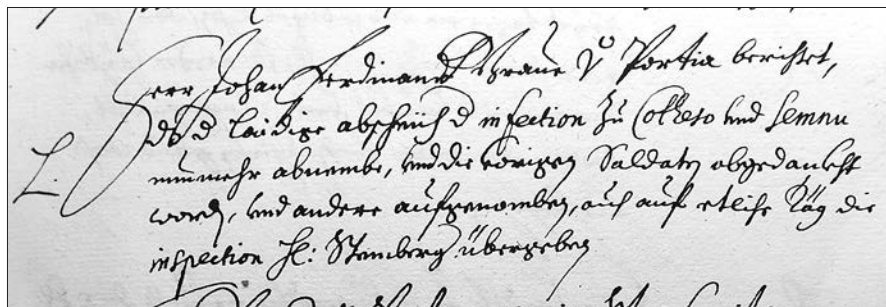 Herr Johan Ferdinandt Graue v Portia berichtet,
dz d laidige abschnitt d infection zu Colleto und Semnu
nunmehr abnembe, und die vorigen Saldaten abgedankht
worden, und andere aufgenomben, auch auf etliche Täg die
L.
inspection H: Stemberg übergeben